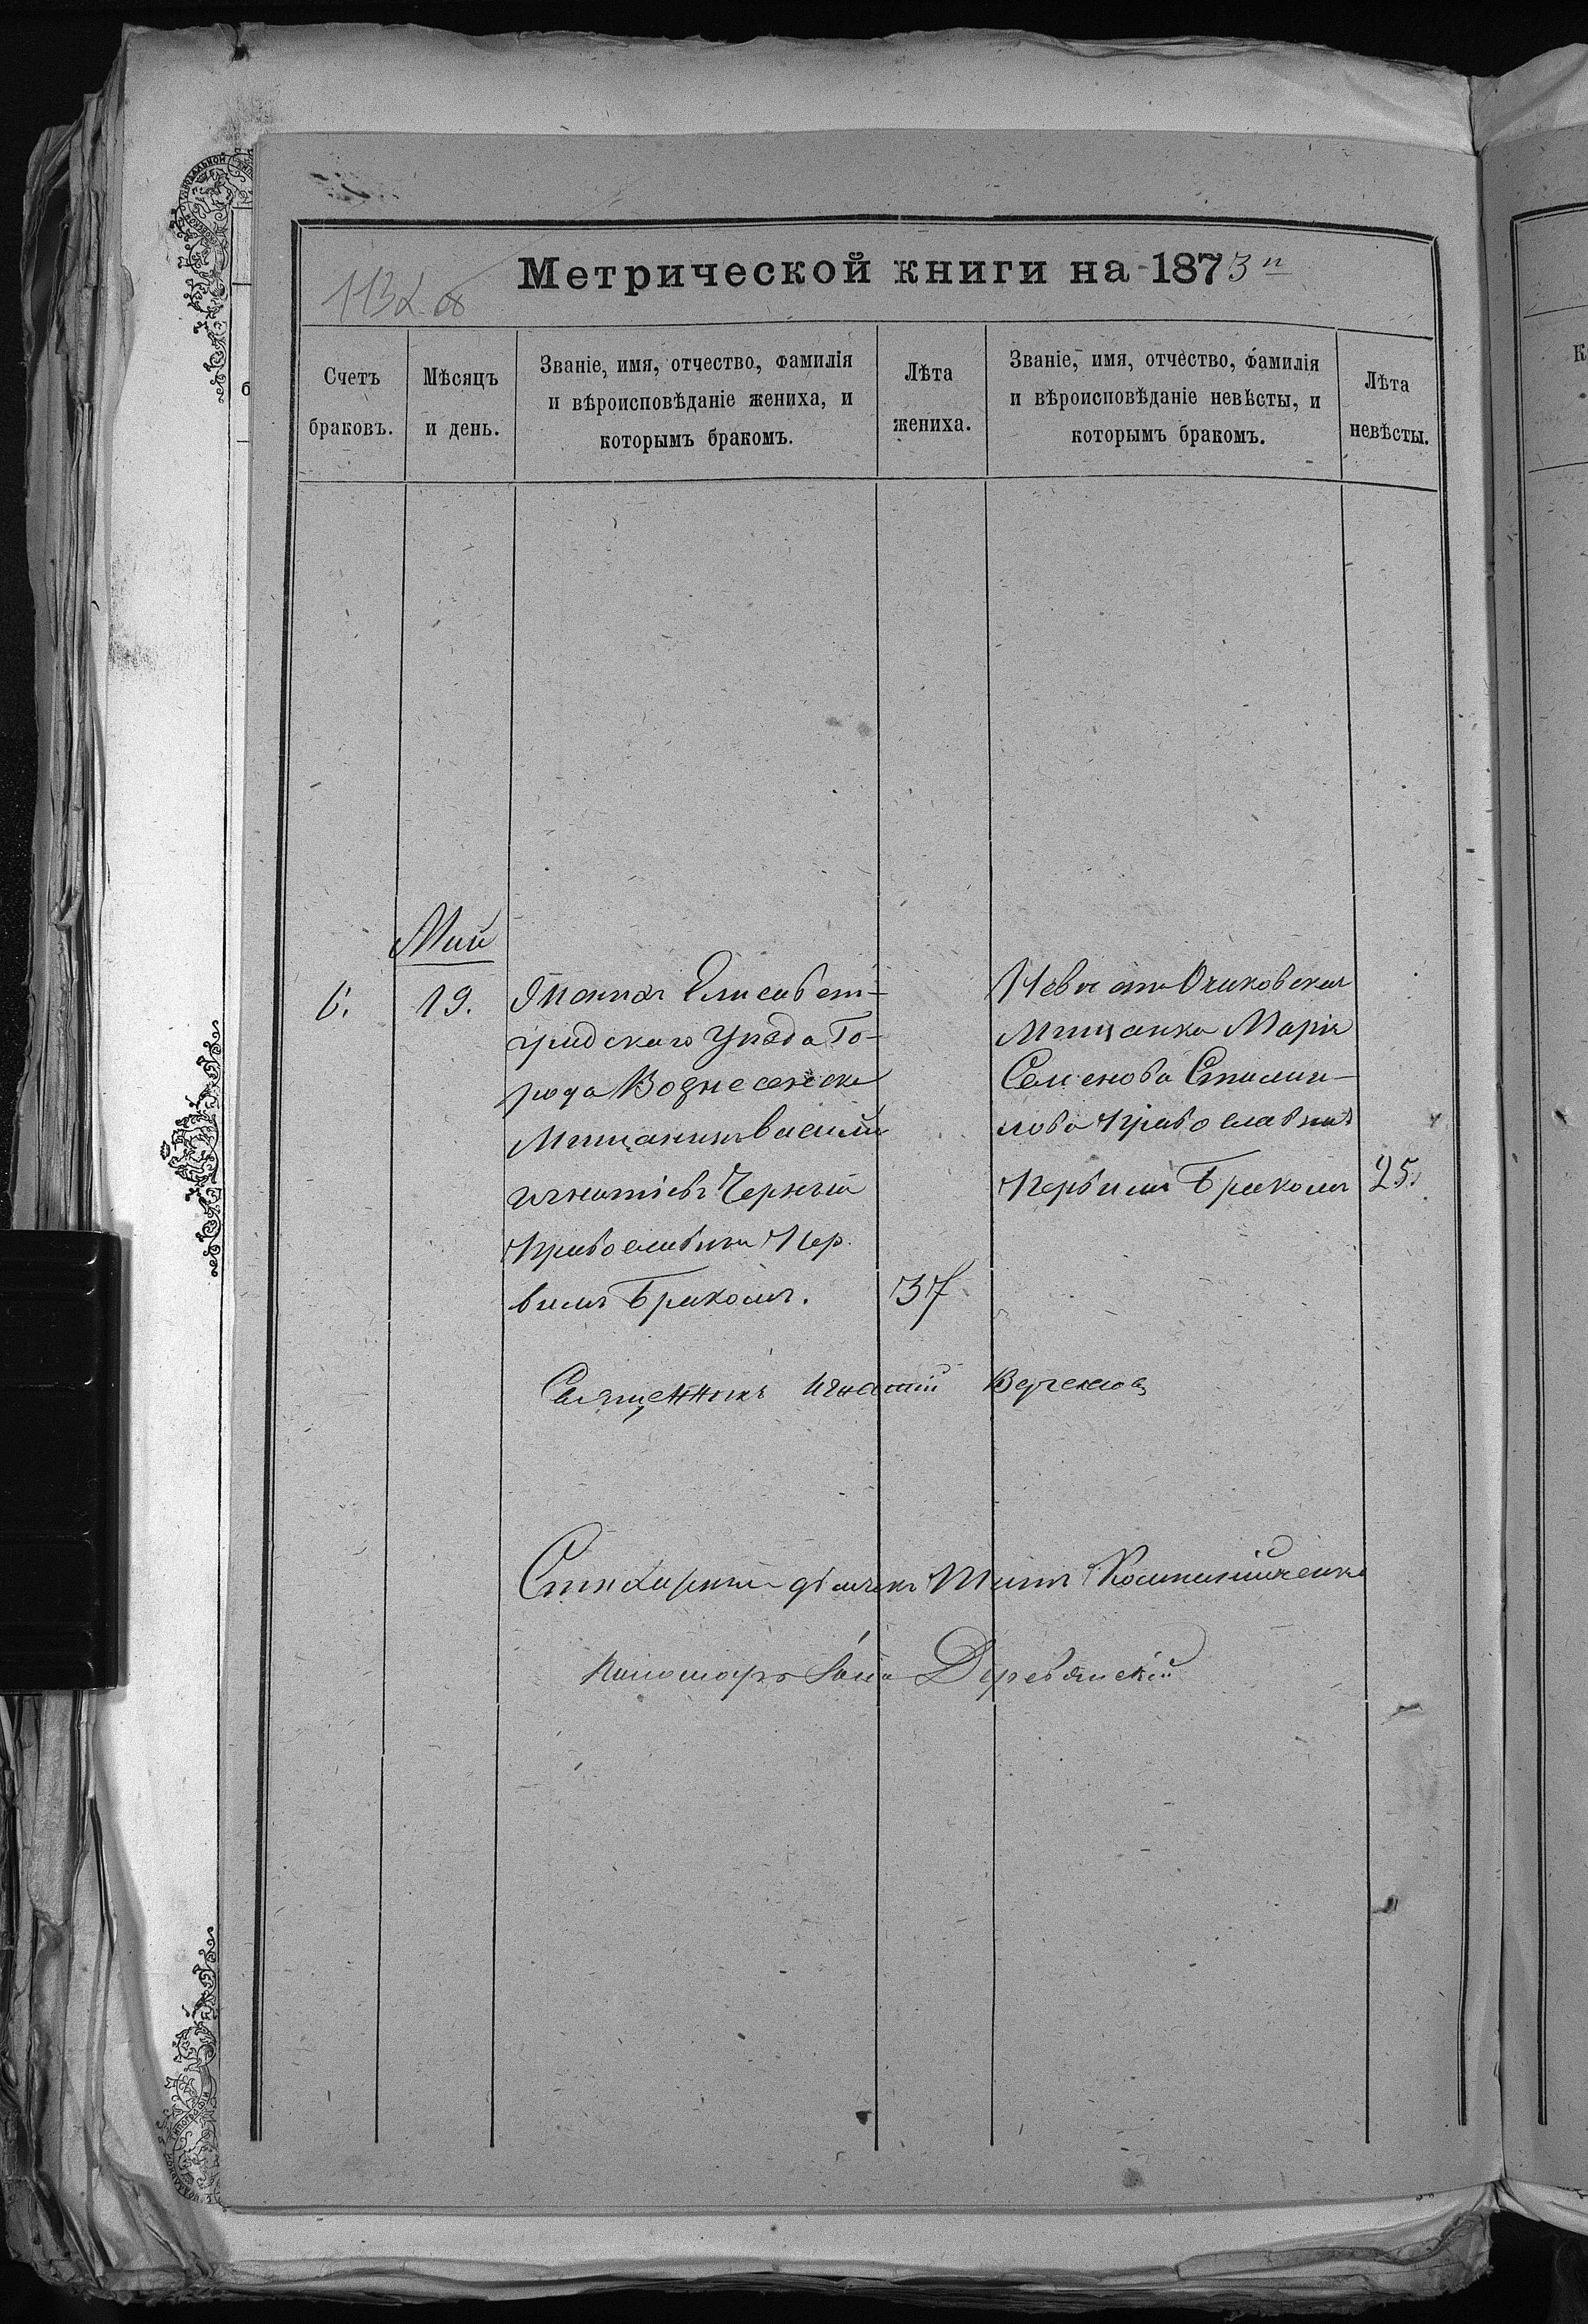 Метрической книги на 1873 г
113 об
Счетъ браковъ.
Мѣсяцъ и день.
Званіе, имя, отчество, фамилія
и вѣроисповѣданіе жениха, и
которымъ бракомъ.
Лѣта жениха.
Званіе, имя, отчество, фамилія
и вѣроисповѣданіе невѣсты, и
которымъ бракомъ.
Лѣта невѣсты.
Май
6.
19.
Женихъ Елисавет-
градскаго Уѣзда Го-
рода Вознесенска
Мѣщанинъ Василій
Игнатіевъ Черный
Православный Пер
вымъ Бракомъ.
37
Невѣста Очаковская
Мѣщанка Марія
Семенова
Православная
Первымъ Бракомъ
25.
Священникъ Игнатій
Стихарный дьячекъ
Пономарь Деревянскій